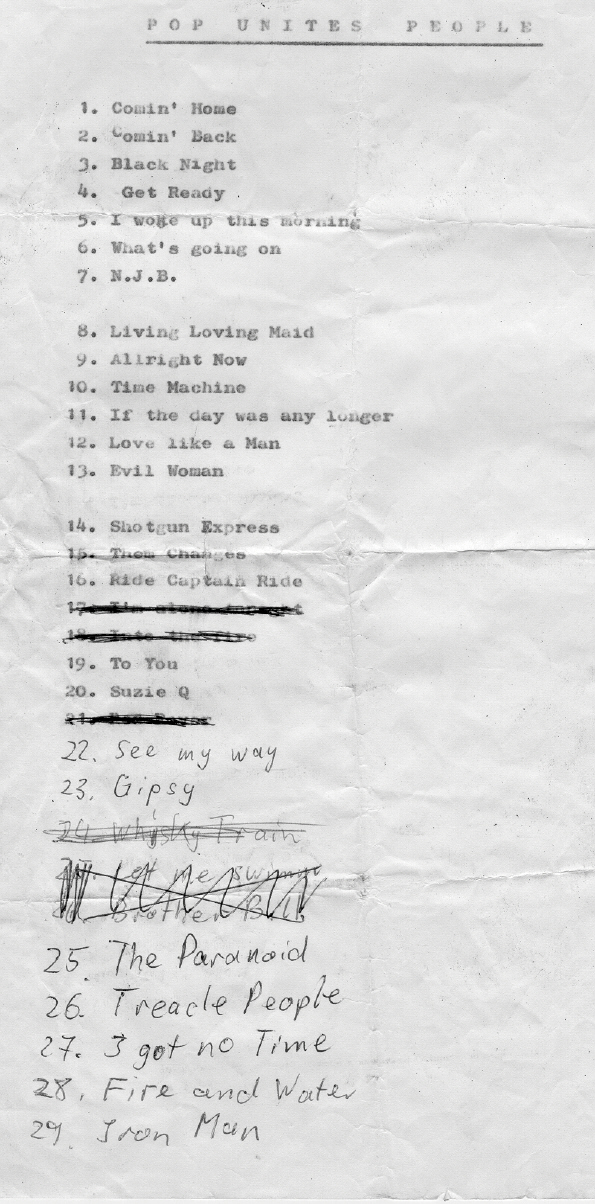 POP UNITES PEOPLE
1. Comin' Home
2. Comin' Back
3. Black Night
4. Get Ready
5. I woke up this morning
6. What's going on
7. N.J.B.
8. Living Loving Maid
9. Allright Now
10. Time Machine
11. If the day was any longer
12. Love like a Man
13. Evil Woman
14. Shotgun Express
15. Them Changes
16. Ride Captain Ride
17. I'm alone
18. Into the fire
19. To You
20. Suzie Q
21.
22. See my way
23. Gipsy
24. Whisky Train
Let me swimm
Brother Bill
25. The Paranoid
26. Treacle People
27. I got no Time
28. Fire and Water
29. Iron Man